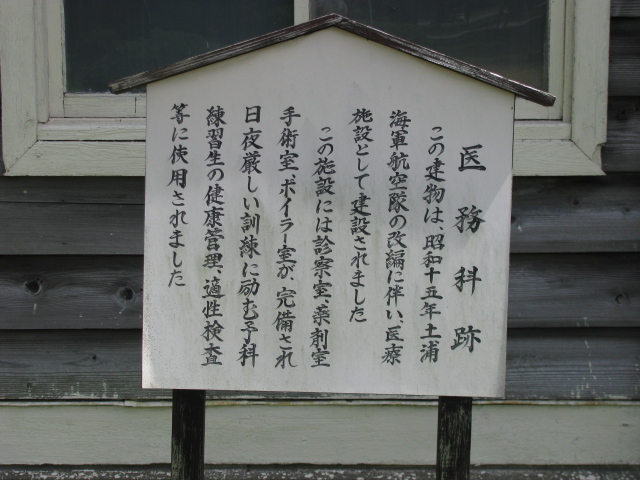 医務科跡
この建物は、昭和十五年土浦
海軍航空隊の改編に伴い、医療
施設として建設されました
この施設には診察室、薬剤室
手術室、ボイラー室が、完備され
日夜厳しい訓練に励む予科
練習生の健康管理、適性検査
等に使用されました